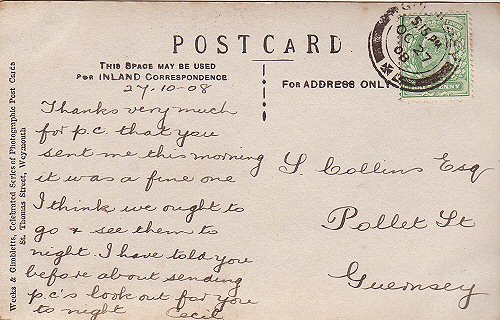 POSTCARD
THIS SPACE MAY BE USED
FOR INLAND CORRESPONDENCE
FOR ADDRESS ONLY
27-10-08
Thanks very much
for p.c. that you
sent me this morning
it was a fine one
I think we ought to
go & see them to
night. I have told you
before about sending
p.c's look out for you
to night Cecil
S. Collins Esq
Pollet St
Guernsey
Weeks & Gimbletts, Celebrated Series of Photographic Post Cards
St. Thomas Street, Weymouth
5.15 PM
OC 27
08